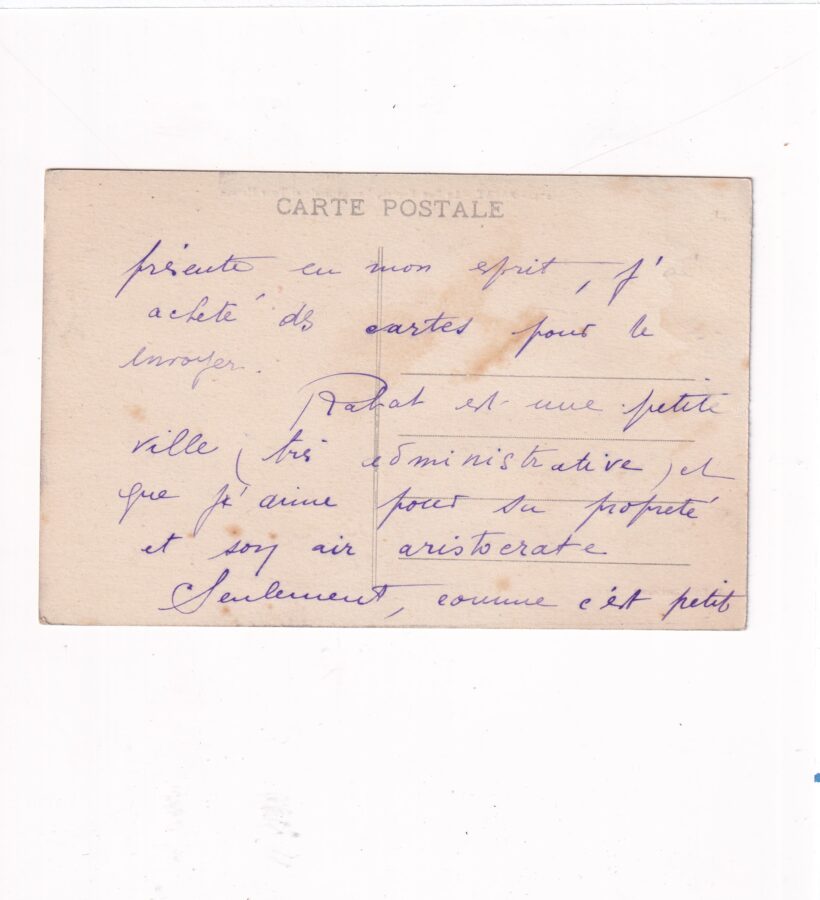 CARTE POSTALE
présente en mon esprit, j'ai
acheté des cartes pour te
envoyer.
Rabat est une petite
ville (très administrative) et
que j'aime pour sa propreté
et son air aristocrate
Seulement, comme c'est petit